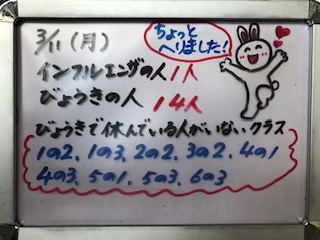 3/11(月)
ちょっと
へりました!
インフルエンザの人 1人
びょうきの人 14人
びょうきで休んでいる人がいないクラス
1の2、1の3、2の2、3の2、4の1
4の3、5の1、5の3、6の3